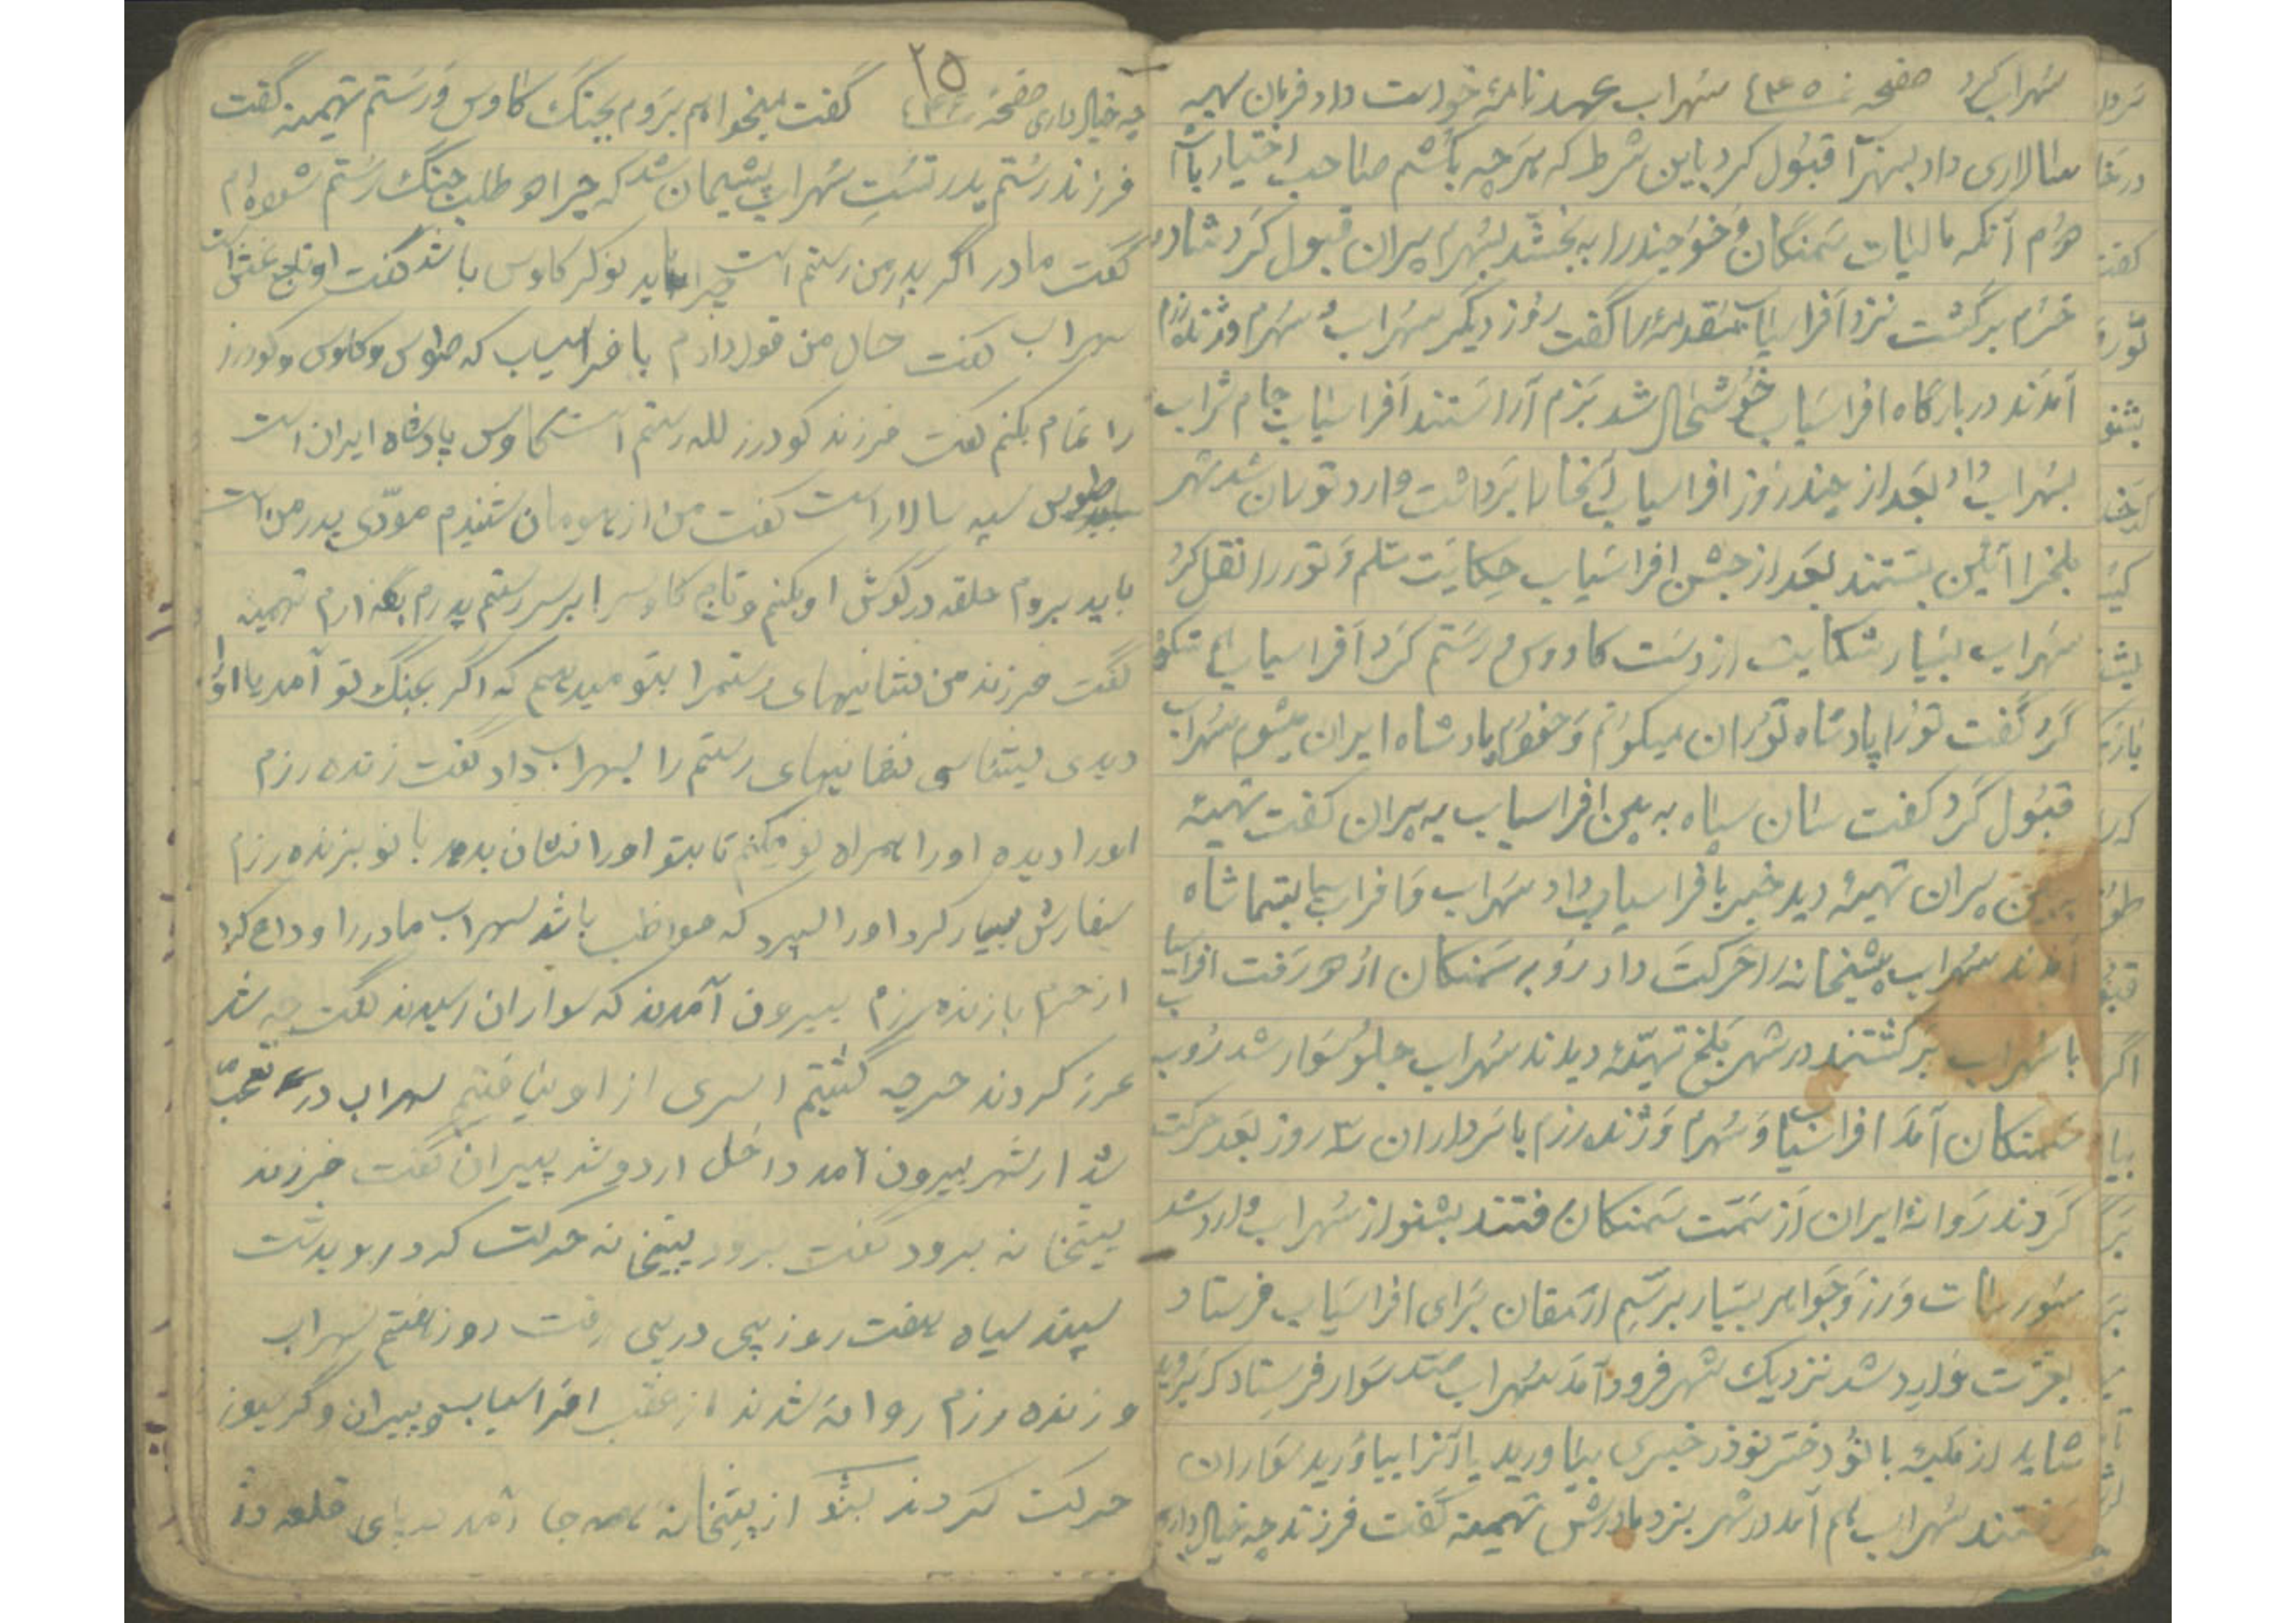 سهراب کرد صفحه نمـ ٤٣٥ سهراب عهد نامهٔ خواست داد فرمان سپه
سالاری داد بسهراب قبول کرد باین شرط که هرچه بکشم صاحب اختیار باشم
دوم آنکه مالیات سمنگان و خوجندرا به بخشد بسهراب پیران قبول کرد شاد
خرم برگشت نزد افراسیاب مقدمه را گفت روز دیگر سهراب و سهرم وژنده رزم
آمدند دربارگاه افراسیاب خوشحال شد بزم آراستند افراسیاب جام شراب
بسهراب داد بعد از چند روز افراسیاب آنها را برداشت وارد توران شد شهر
بلخ را آئین بستند بعد از جشن افراسیاب حکایت سلم و تور را نقل کرد
سهراب بسیار شکایت از دست کاووس و رستم کرد افراسیاب
کرد گفت تورا پادشاه توران میکنم و خودم پادشاه ایران میشوم سهراب
قبول کرد گفت سان سپاه به بین افراسیاب به پیران گفت تهیه
ببین پیران تهیه دید خبر بافراسیاب داد سهراب و افراسیاب بتماشاه
آمدند سهراب پیشخانه را حرکت داد رو به سمنکان از هر رفت افراسیاب
با سهراب برگشتند در شهر بلخ تهیّهٔ دیدند سهراب جلو سوار شد رو به
سمنکان آمد افراسیاب و سهرم وژنده رزم با سرداران سه روز بعد حرکت
کردند روانهٔ ایران از سمت سمنکان رفتند بشنو از سهراب وارد شد
سورسات و زر و جواهر بسیار برسم ارمقان برای افراسیاب فرستاد
بعزت وارد شد نزدیک شهر فرود آمد سهراب صد سوار فرستاد که بروید
شاید از ملکه بانو دختر نوذر خبری بیاورید یا آنرا بیاورید سواران
رفتند سهراب هم آمد در شهر نزد مادرش تهمینه گفت فرزند چه خیال داری
۲۵
چه خیال داری صفحه ٤٣٦ گفت میخواهم بروم بجنگ کاوس و رستم تهمینه گفت
فرزند رستم پدر تست سهراب پشیمان شد که چرا دو طلب جنگ رستم شده ام
گفت مادر اگر پدر من رستم است چرا باید نوکر کاوس باشد گفت او تاج بخش است
سهراب گفت حال من قول دادم بافراسیاب که طوس و کاوس و گودرز
را تمام بکنم گفت فرزند گودرز لله رستم است کاوس پادشاه ایران است
طوس سپه سالار است گفت من از هومان شنیدم مودّی پدر من است
باید بروم حلقه در گوش او بکنم و تاج کاوسرا بر سر رستم پدرم بگذارم تهمینه
گفت فرزند من نشانیهای رستمرا بتو میدهم که اگر بجنگ تو آمد یا او را
دیدی بشناسی نشانیهای رستم را بسهراب داد گفت زنده رزم
اورا دیده اورا همراه تو میکنم تا بتو اورا نشان بدهد بانو بزنده رزم
سفارش بسیار کرد اورا سپرد که مواظب باشد سهراب مادر را وداع کرد
از حرم با زنده رزم بیرون آمدند که سواران رسیدند گفت چه شد
عرز کردند هرچه گشتیم اسری از او نیافتیم سهراب در تعجّب
شد از شهر بیرون آمد داخل اردو شد پیران گفت فرزند
پیشخانه برود گفت برود پیشخانه حرکت کرد رو بدشت
سپند سپاه هفت روز پی در پی رفت روز هفتم سهراب
و زنده رزم روانه شدند از عقب افراسیاب و پیران و گرسیوز
حرکت کردند بشنو از پیشخانه همه جا آمد بپای قلعه دژ